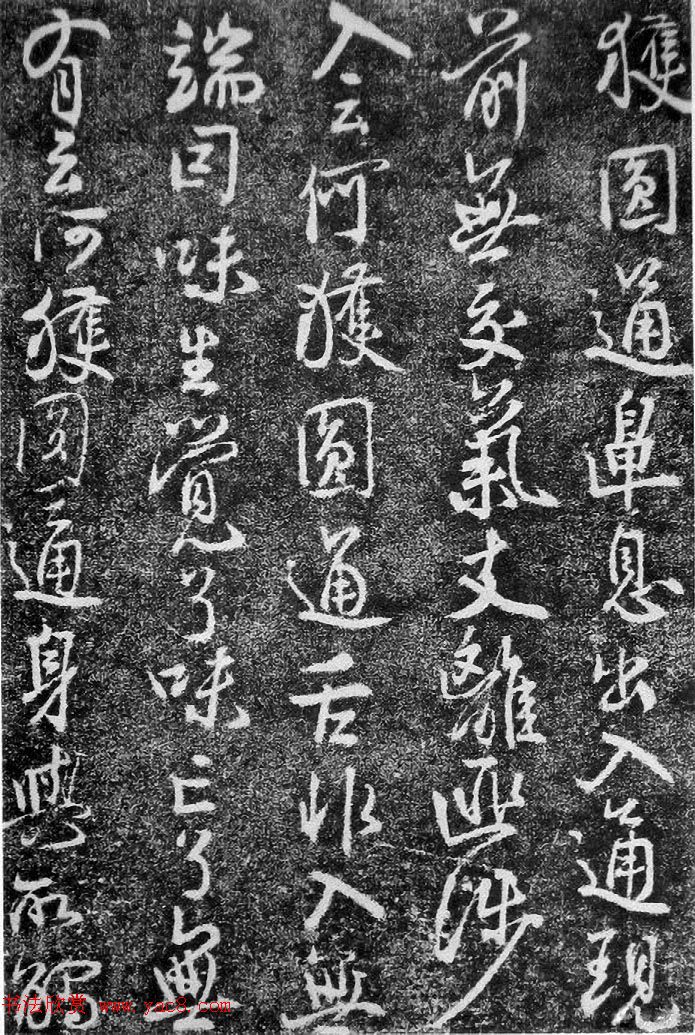 獲圓通鼻息出入通現
前無交氣支離匪涉
入云何獲圓通舌非入無
端因味生覺了味亡了無
有云何獲圓通身與所觸
书法欣赏 www.yac8.com